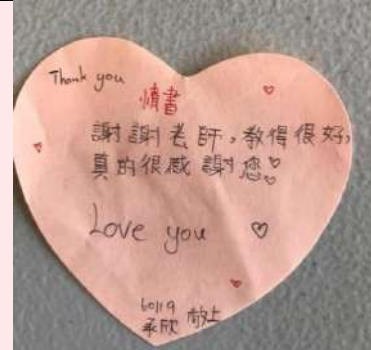 Thank you
情書
謝謝老師，教得很好，
真的很感謝您♡
Love you ♡
60119
承欣 敬上